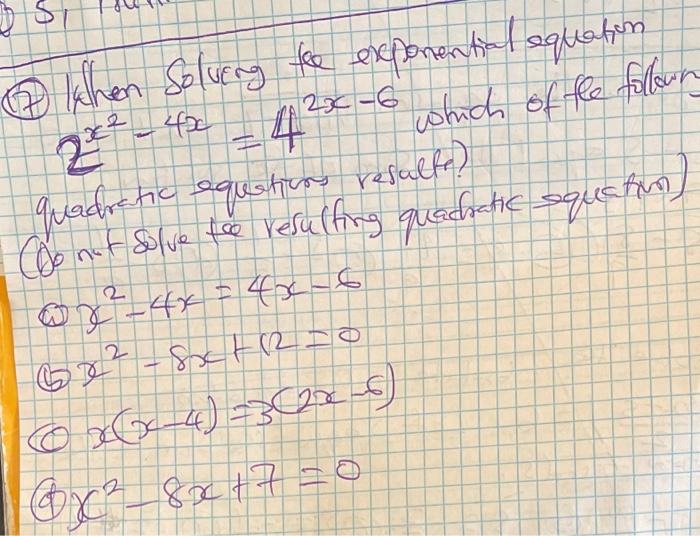 S,
⑦ When Solving the exponential equation
2^{x² - 4x} = 4^{2x - 6} which of the following
quadratic equations results?
(Do not Solve the resulting quadratic equation)
ⓐ x² - 4x = 4x - 6
ⓑ x² - 8x + 12 = 0
ⓒ x(x - 4) = 3(2x - 6)
ⓓ x² - 8x + 7 = 0